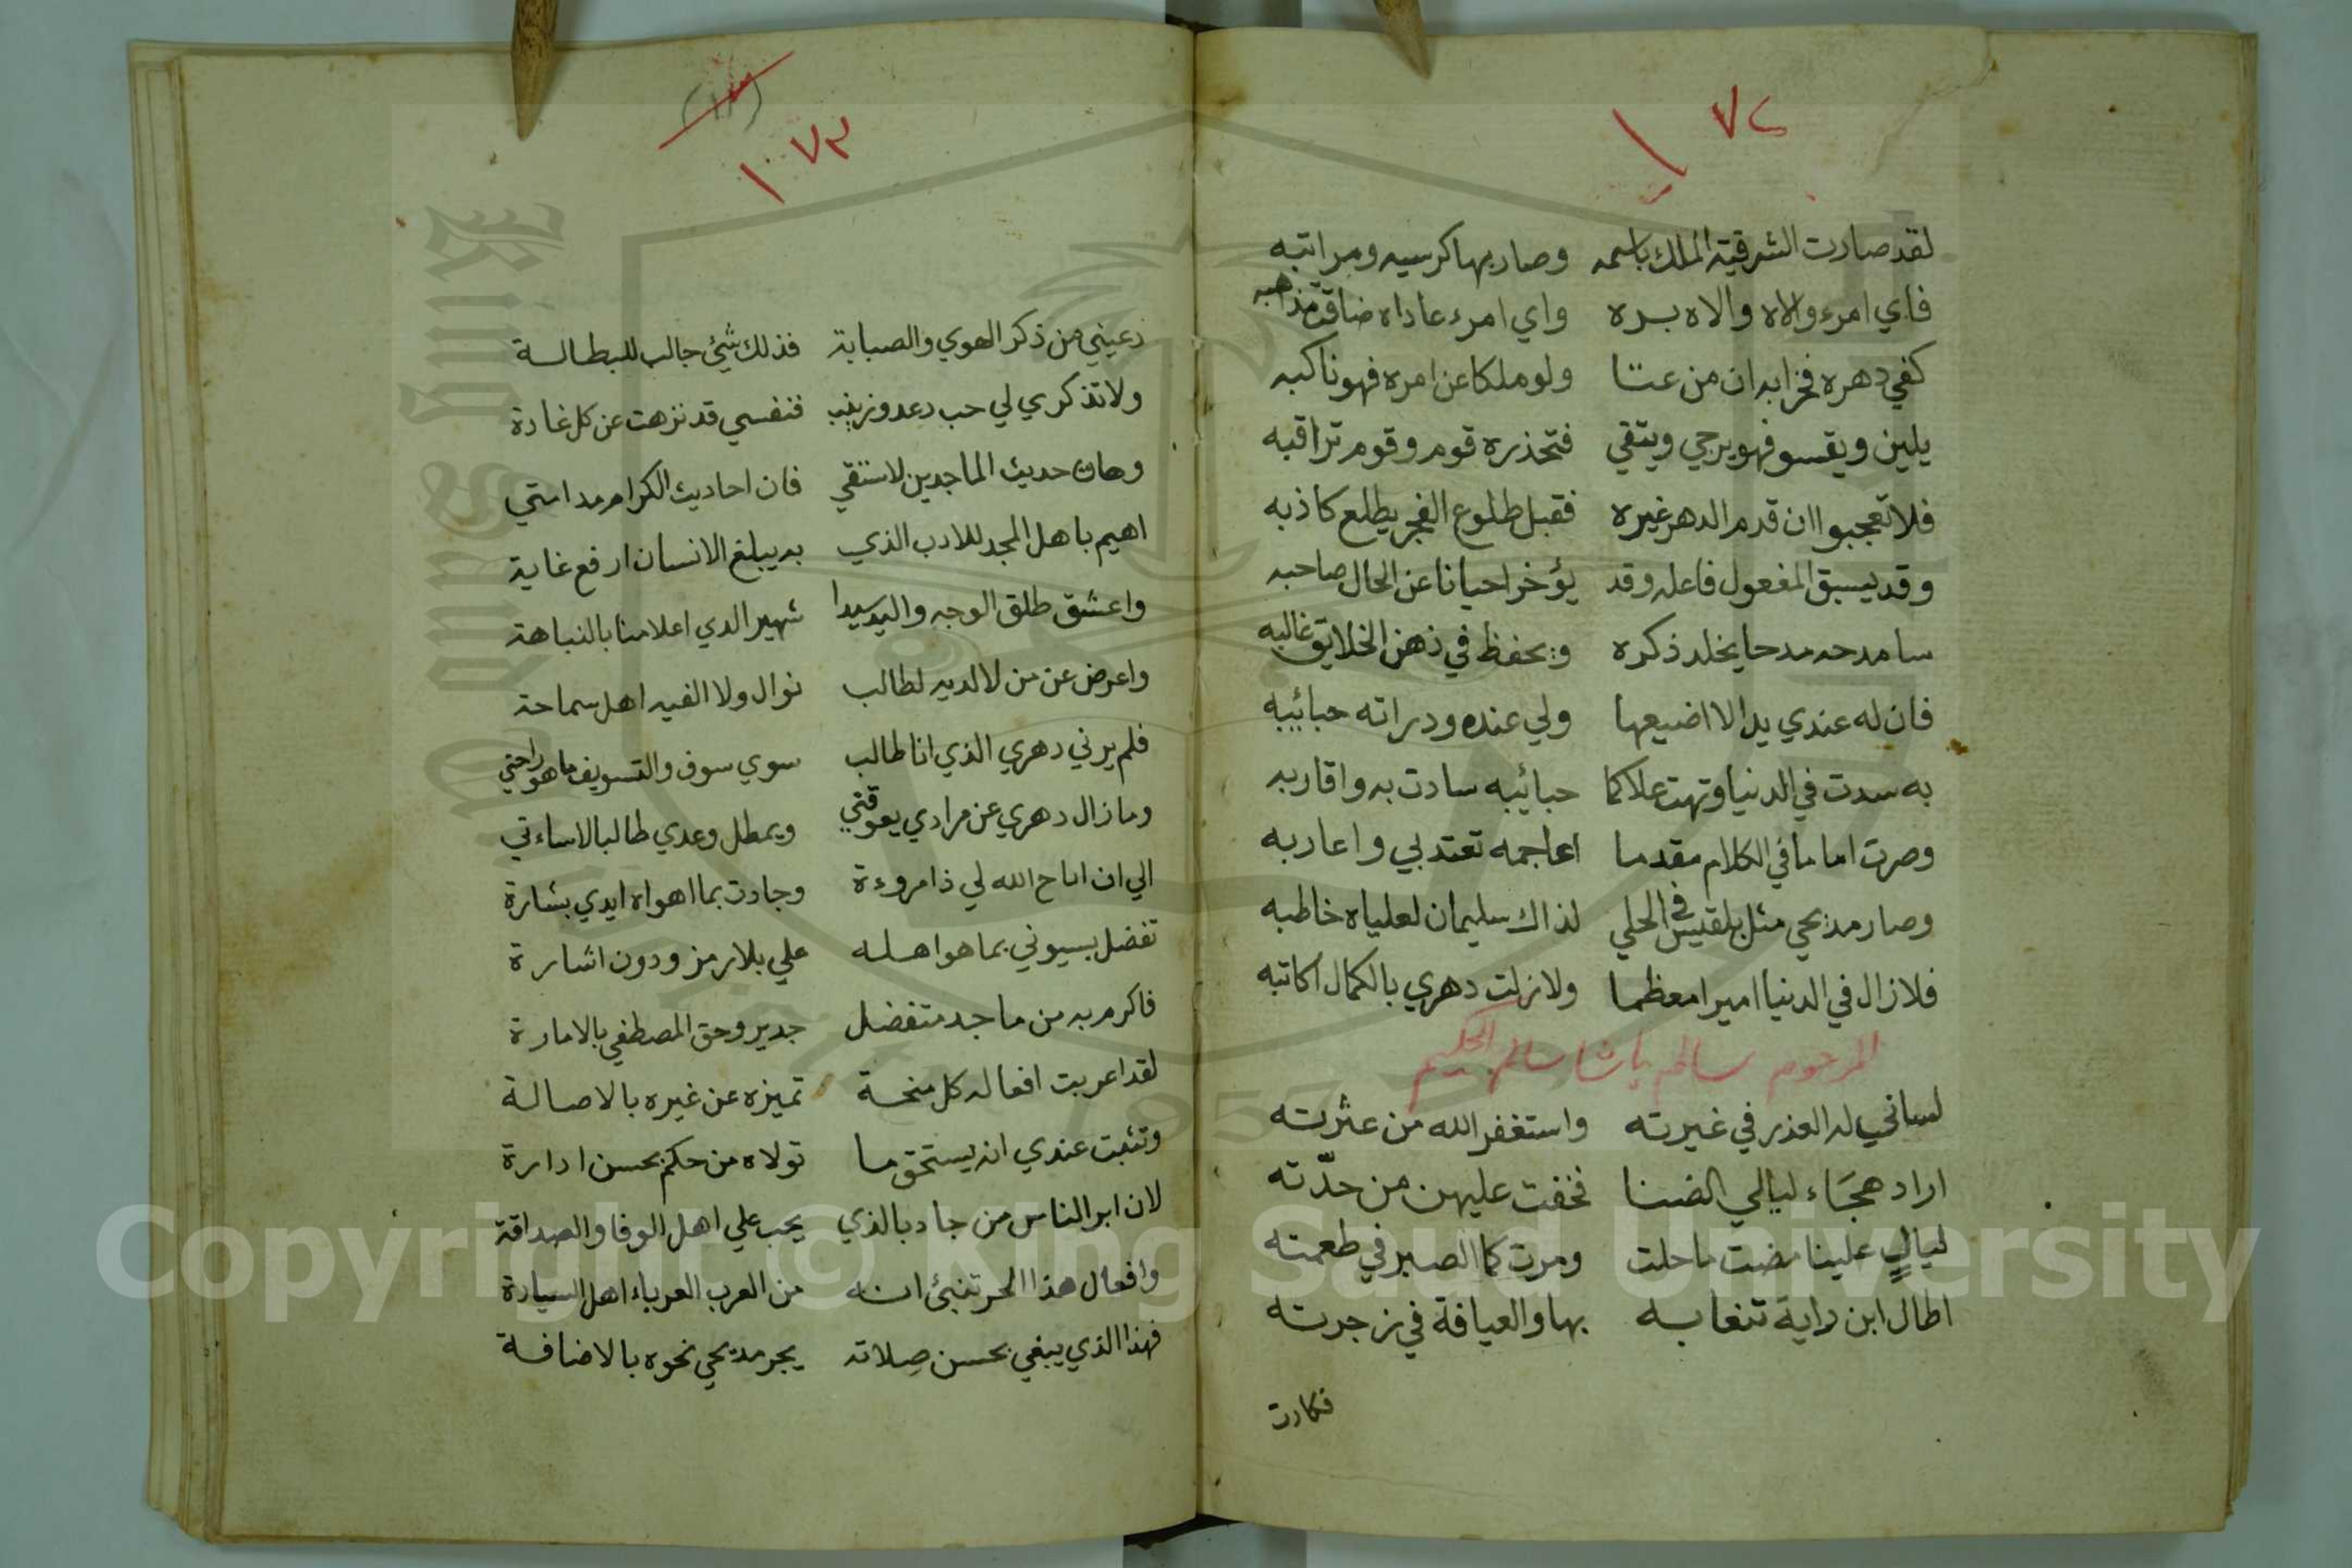 ١٧٢
لقد صارت الشرقية الملك باسمه وصار بها كرسيه ومراتبه
فاي امرء والاه والاه بره واي امرء عاداه ضاقت مذاهبه
كفي دهره فخرا به ان من عتا ولو ملكا عن امره فهو ناكبه
يلين ويقسو فهو يرجي ويتقي فتحذره قوم وقوم تراقبه
فلا تعجبوا ان قدم الدهر غيره فقبل طلوع الفجر يطلع كاذبه
وقد يسبق المفعول فاعله وقد يؤخر احيانا عن الحال صاحبه
سامدحه مدحا يخلد ذكره ويحفظ في ذهن الخلايق غالبه
فان له عندي يدا لا اضيعها ولي عنده ودراته حبائبه
به سدت في الدنيا وتهت علا كما حبائبه سادت به واقاربه
وصرت اماما في الكلام مقدما اعاجمه تعتد بي واعاربه
وصار مديحي مثل بلقيس في الحلي لذاك سليمان لعلياه خاطبه
فلا زال في الدنيا اميرا معظما ولا زلت دهري بالكمال اكاتبه
المرحوم سالم باشا سالم الحكيم
لساني له العذر في غيرته واستغفر الله من عثرته
اراد هجاء ليالي الضنا فخفت عليهن من حدّته
ليالٍ علينا مضت ما حلت ومرت كما الصبر في طعمته
اطال ابن داية تنعابه بها والعيافة في زجرته
فكادت
١٧٣
دعيني من ذكر الهوي والصبابة فذلك شئ جالب للبطالة
ولا تذكري لي حب دعد وزينب فنفسي قد نزهت عن كل غادة
وهات حديث الماجدين لاستقي فان احاديث الكرام مدامتي
اهيم باهل المجد للادب الذي به يبلغ الانسان ارفع غاية
واعشق طلق الوجه واليد سيدا شهير الدي اعلامنا بالنباهة
واعرض عن من لا لديه لطالب نوال ولا الفيه اهل سماحة
فلم يرني دهري الذي انا طالب سوي سوف والتسويف ما هو راحتي
وما زال دهري عن مرادي يعوقني ويمطل وعدي طالبا لاساءتي
الي ان اتاح الله لي ذا مروءة وجادت بما اهواه ايدي بشارة
تفضل بسيوني بما هو اهله علي بلا رمز ودون اشارة
فاكرم به من ماجد متفضل جدير وحق المصطفي بالامارة
لقد اعربت افعاله كل منحة تميزه عن غيره بالاصالة
وتثبت عندي انه يستحق ما تولاه من حكم بحسن ادارة
لان ابر الناس من جاد بالذي يجب علي اهل الوفا والصداقة
وافعال هذا الحر تنبئ انه من العرب العرباء اهل السيادة
فهذا الذي يبغي بحسن صِلاته يجر مديحي نحوه بالاضافة
Copyright © King Saud University
King Saud University
1957